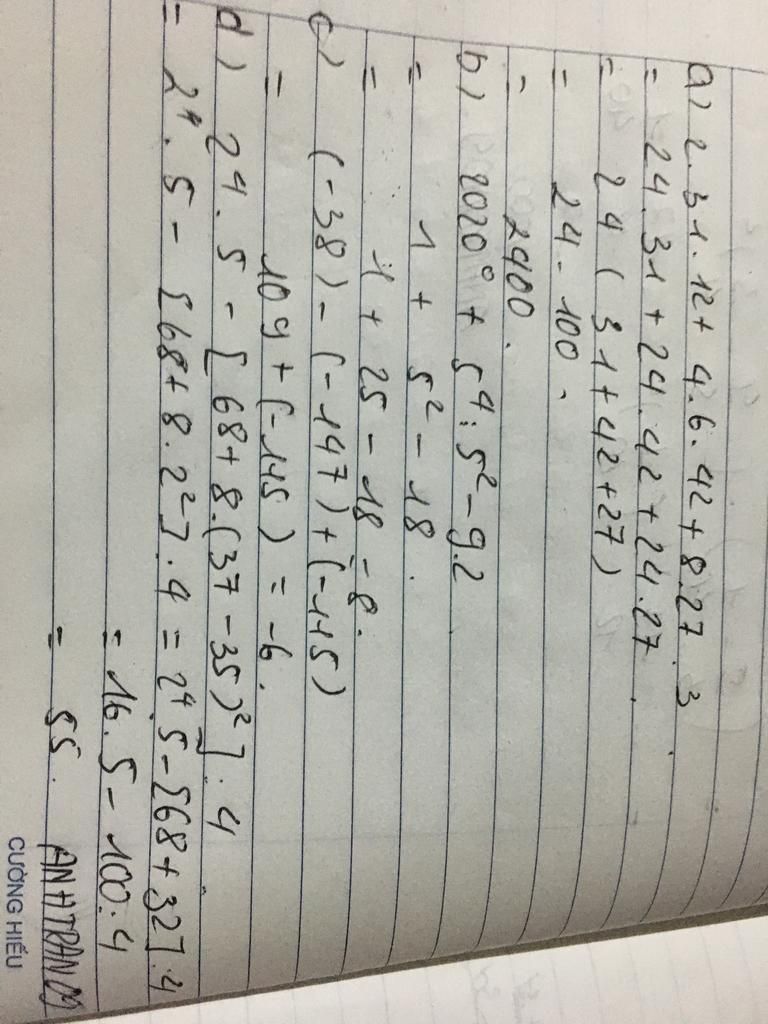 a) 2.31.12 + 4.6.42 + 8.27.3
= 24.31 + 24.42 + 24.27
= 24 (31+42+27)
= 24.100.
= 2400.
b) 2020⁰ + 5⁴:5² - 9.2
= 1 + 5² - 18.
= 1 + 25 - 18 = 8.
c) (-38) - (-147) + (-115)
= 109 + (-115) = -6.
d) 2⁴.5 - [68 + 8.(37 - 35)²] . 4
= 2⁴.5 - [68 + 8.2²] .4 = 2⁴.5 - [68 + 32] .4
= 16.5 - 100.4
= 55.
CƯỜNG HIẾU